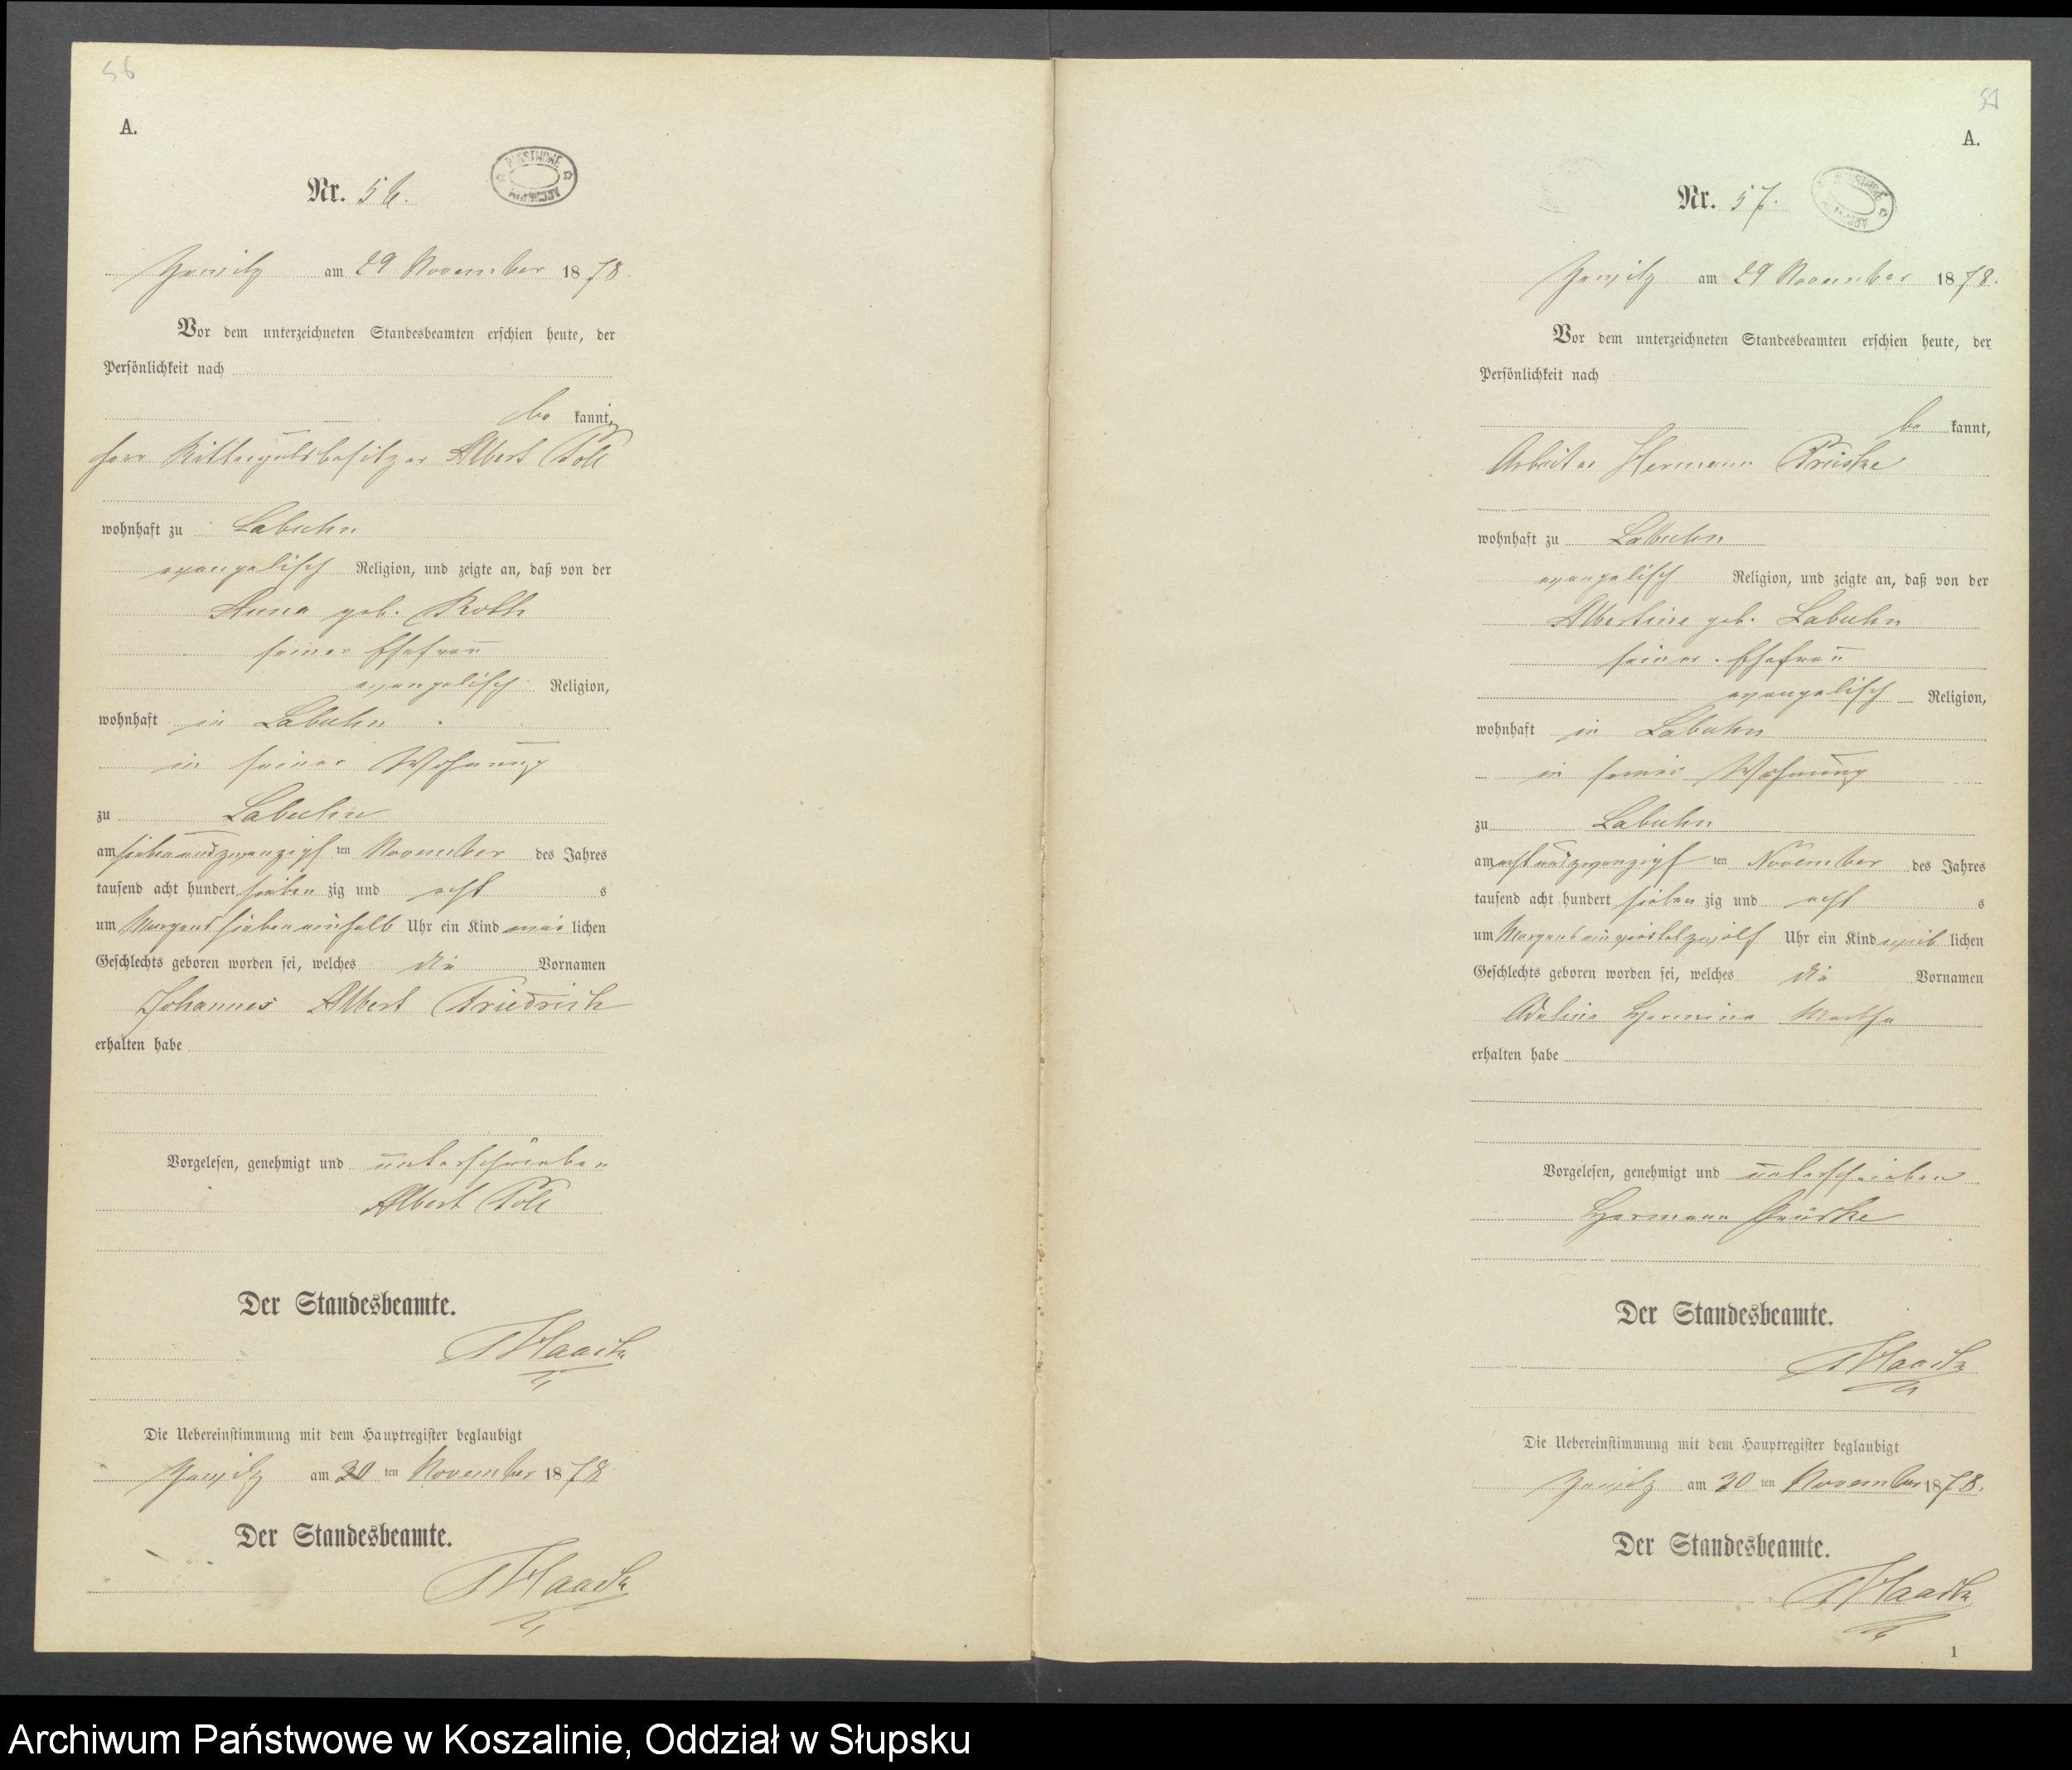 56
A.
Nr. 56.
PAŃSTWOWE ARCHIWUM
Zewitz am 29 November 1878.
Vor dem unterzeichneten Standesbeamten erschien heute, der
Persönlichkeit nach
be kannt,
Herr Rittergutsbesitzer Albert Poll
wohnhaft zu Labuhn
evangelisch Religion, und zeigte an, daß von der
Anna geb. Roth
seiner Ehefrau
evangelisch Religion,
wohnhaft in Labuhn
in seiner Wohnung
zu Labuhn
am siebenundzwanzigsten November des Jahres
tausend acht hundert sieben zig und acht s
um Morgens sieben einhalb Uhr ein Kind männlichen
Geschlechts geboren worden sei, welches die Vornamen
Johannes Albert Friedrich
erhalten habe
Vorgelesen, genehmigt und unterschrieben
Albert Poll
Der Standesbeamte.
Die Uebereinstimmung mit dem Hauptregister beglaubigt
Zewitz am 30 ten November 1878
Der Standesbeamte.
57
A.
Nr. 57.
Zewitz am 29 November 1878.
Vor dem unterzeichneten Standesbeamten erschien heute, der
Persönlichkeit nach
be kannt,
Arbeiter Hermann Prüske
wohnhaft zu Labuhn
evangelisch Religion, und zeigte an, daß von der
Albertine geb. Labuhn
seiner Ehefrau
evangelisch Religion,
wohnhaft in Labuhn
in seiner Wohnung
zu Labuhn
am achtundzwanzigsten November des Jahres
tausend acht hundert sieben zig und acht s
um Morgens einviertelzwölf Uhr ein Kind weiblichen
Geschlechts geboren worden sei, welches die Vornamen
Adeline Hermine Martha
erhalten habe
Vorgelesen, genehmigt und unterschrieben
Hermann Prüske
Der Standesbeamte.
Die Uebereinstimmung mit dem Hauptregister beglaubigt
Zewitz am 30 ten November 1878.
Der Standesbeamte.
1
Archiwum Państwowe w Koszalinie, Oddział w Słupsku